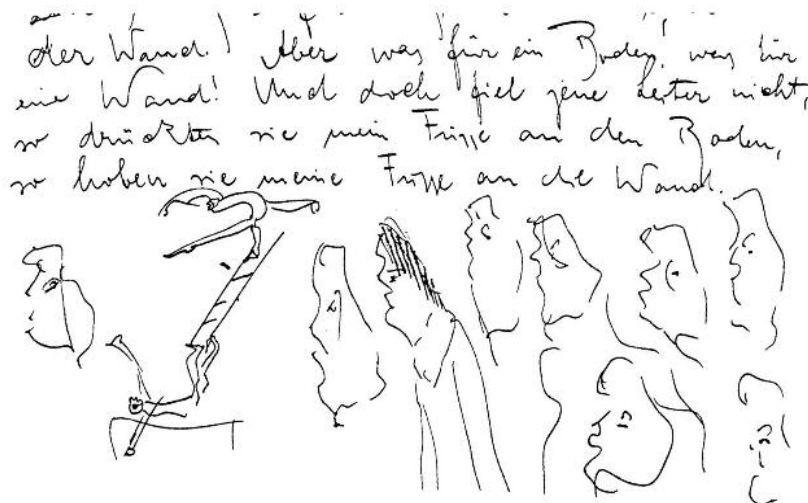 der Wand. Aber was für ein Boden! was für
eine Wand! Und doch fiel jene Leiter nicht,
so drückten sie mein Füsse an den Boden,
so hoben sie meine Füsse an die Wand.